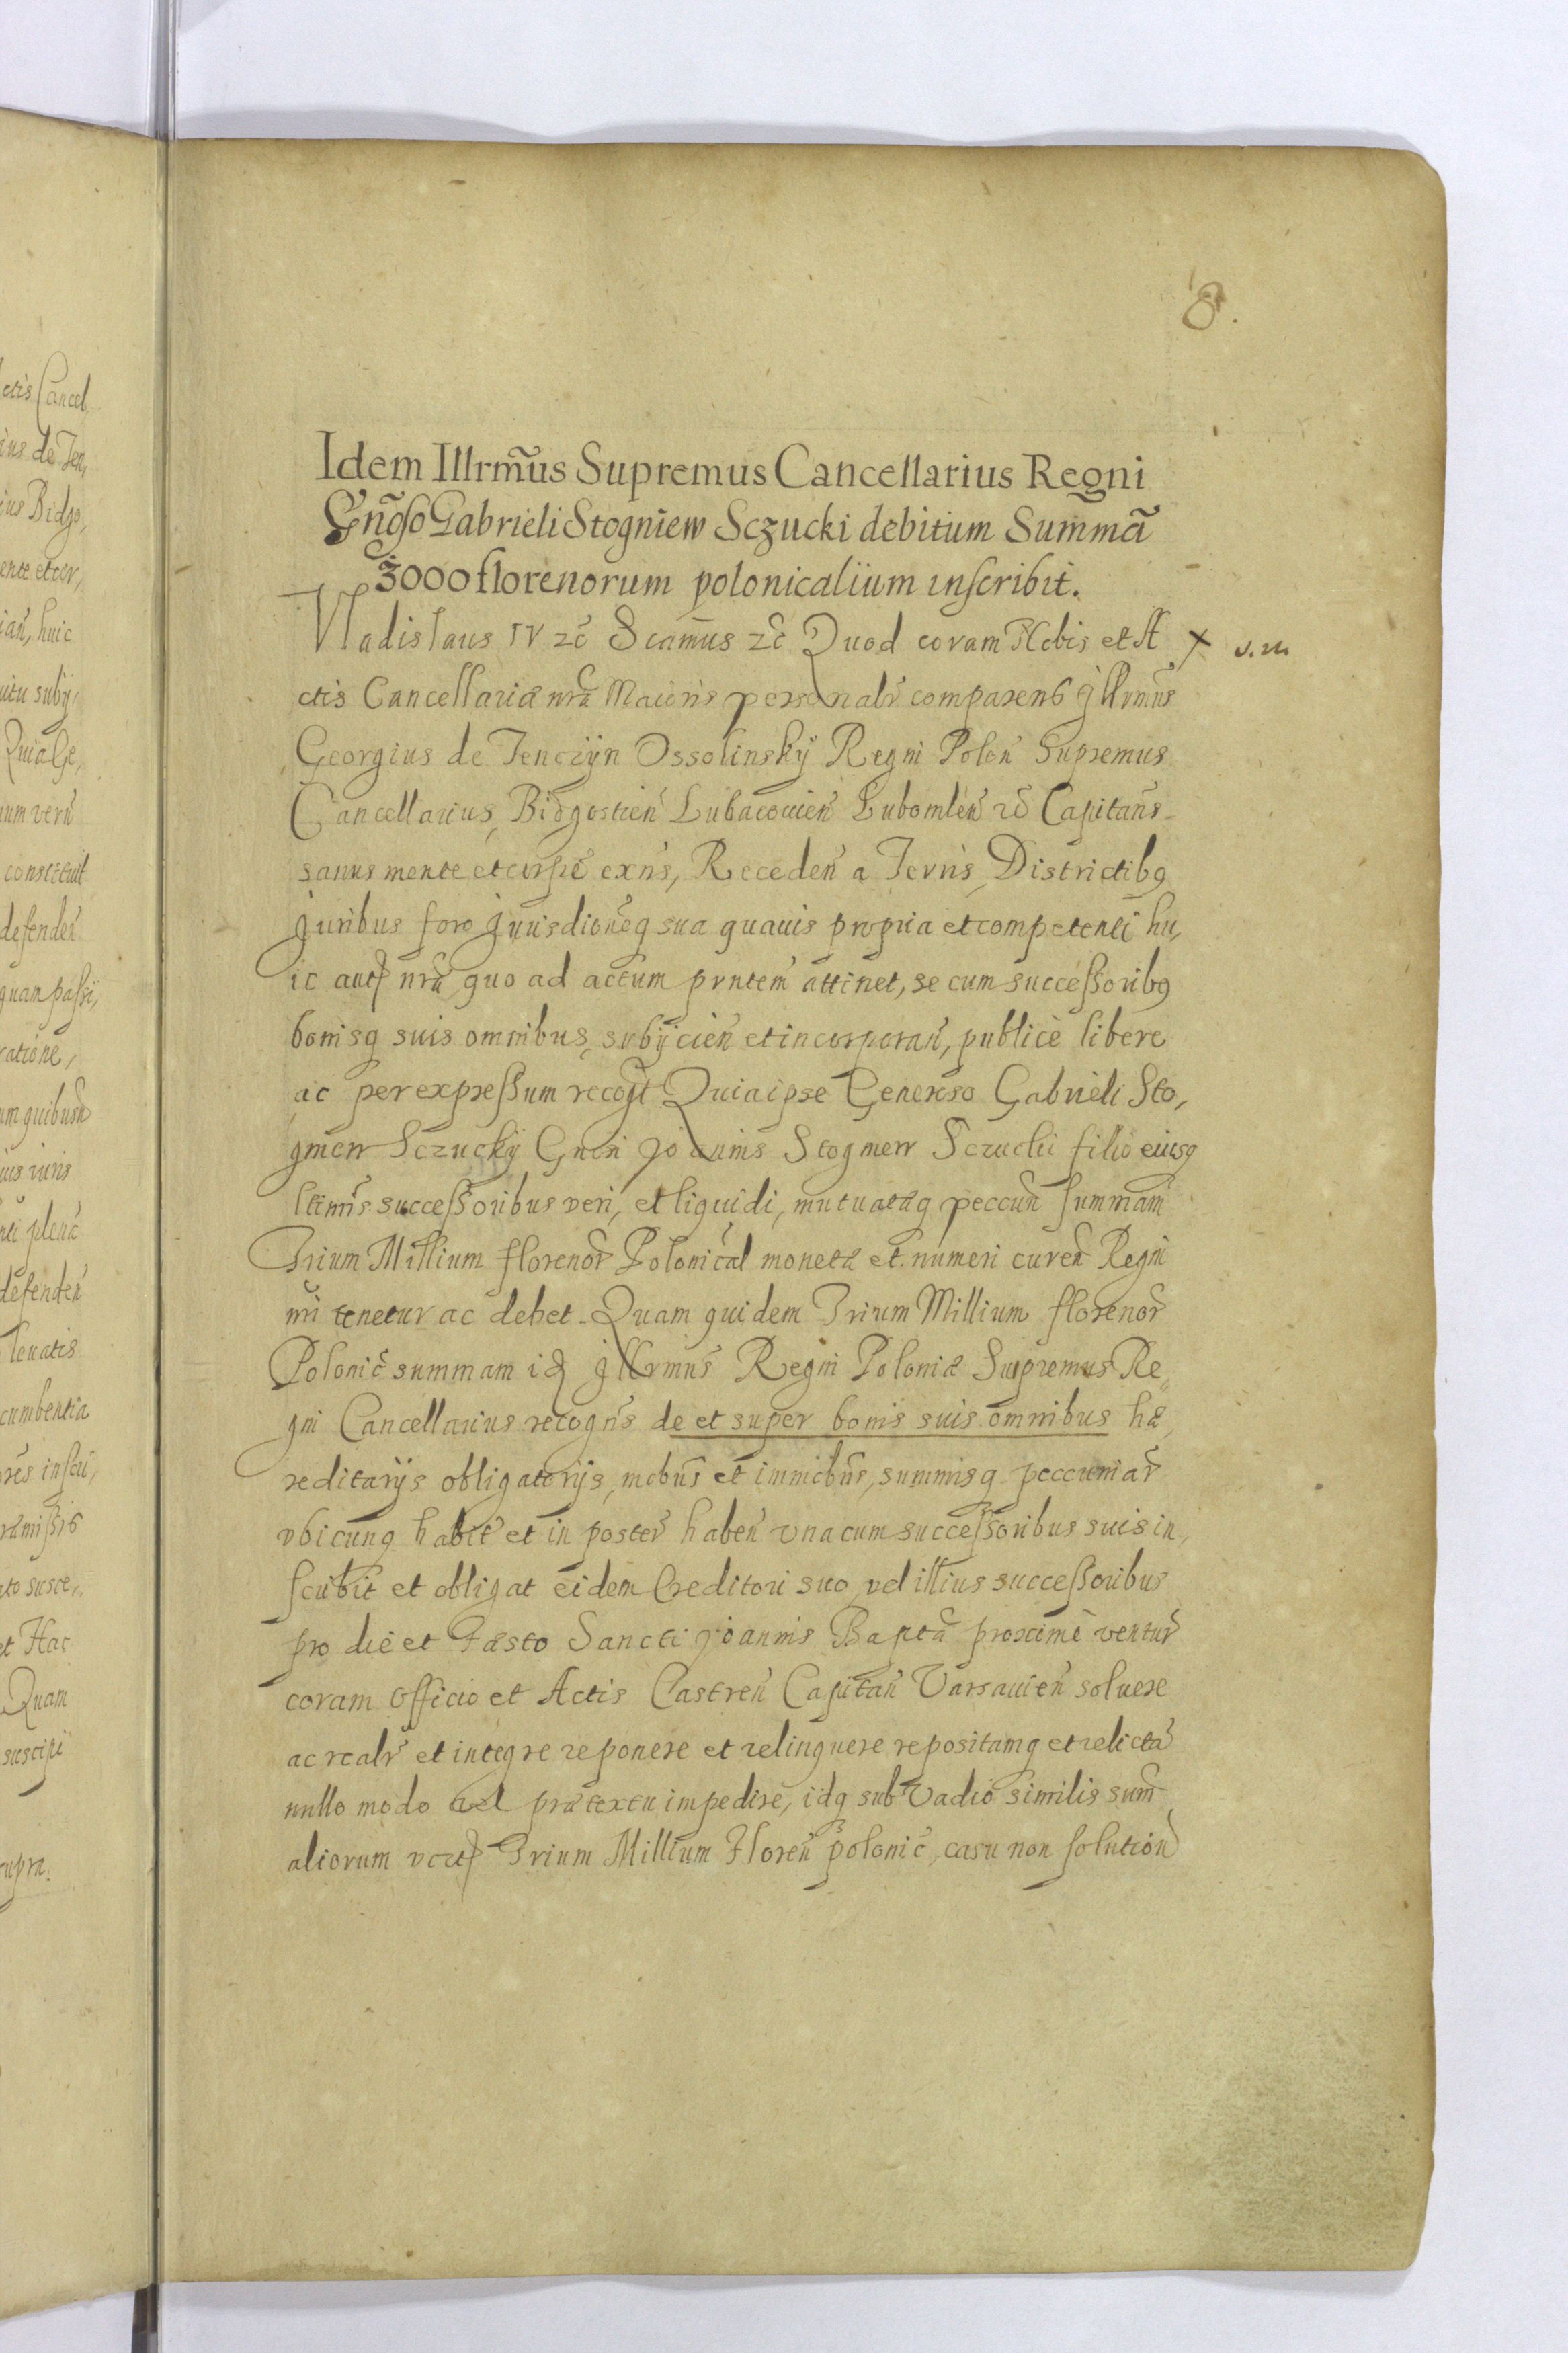 8.
Idem Illrm̃us Supremus Cancellarius Regni
Gñoso Gabrieli Stogniew Sczucki debitum Summã
3000 florenorum polonicalium inscribit.
Vladislaus IV zc̃ Scamus̃ zc̃ Quod coram Nobis et A
ctis Cancellariæ nrã Maioris personalr̃ comparens Jllrmus̃
Georgius de Tenczyn Ossolinsky Regni Polon̄ Supremus
Cancellarius, Bidgostien̄ Lubacovien̄ Lubomlen̄ zc̃ Capitan̄s
sanus mente et corpe exn̄s, Receden̄ a Terris, Districtibq
Juribus foro Jurisdioneq̃ sua quavis propria et competenti hu,
ic autẽ nrã quo ad actum prntem̄ attinet, se cum successoribq
bonisq suis omnibus, subijcien̄ et incorporan̄, publicè libere
ac per expressum recogt̃ Quia ipse Generoso Gabrieli Sto,
gniew Sczucky Gnsi Joannis Stogniew Sczucki filio eiusq
ltimis̃ successoribus veri, et liquidi, mutuatæq peccun̄ summam
Trium Millium florenor̃ Polonical̃ monetæ et numeri curen̄ Regni
nri tenetur ac debet. Quam quidem Trium Millium florenor̃
Polonic̃ summam idẽ Jllrmus̃ Regni Poloniæ Supremus Re,
gni Cancellarius recogns̃ de et super bonis suis omnibus hæ,
reditarijs obligatorijs, mobus̃ et immobus̃, summisq peccuniar̃
vbicunq habit̃ et in poster̃ haben̄ vna cum successoribus suis in,
scribit et obligat eidem Creditori suo vel illius successoribus
pro die et Fæsto Sancti Joannis Baptæ̃ proximè ventur̃
coram Officio et Actis Castren̄ Capitan̄ Varsavien̄ solvere
ac realr̃ et integre reponere et relinquere repositamq et relictã
nullo modo vel prætextu impedire, idq sub Vadio similis sum̃
aliorum vertẽ Trium Millium Floren̄ polonic̃, casu non solution̄